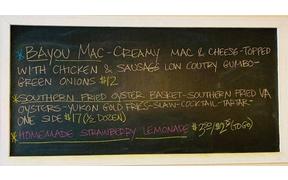 *BAYOU MAC-CREAMY MAC & CHEESE-TOPPED
WITH CHICKEN & SAUSAGE LOW COUTRY GUMBO-
GREEN ONIONS $12
*SOUTHERN FRIED OYSTER BASKET-SOUTHERN FRIED VA
OYSTERS-YUKON GOLD FRIES-SLAW-COCKTAIL-TARTAR-
ONE SIDE $17 (½ DOZEN)
*HOMEMADE STRAWBERRY LEMONADE (TO GO)